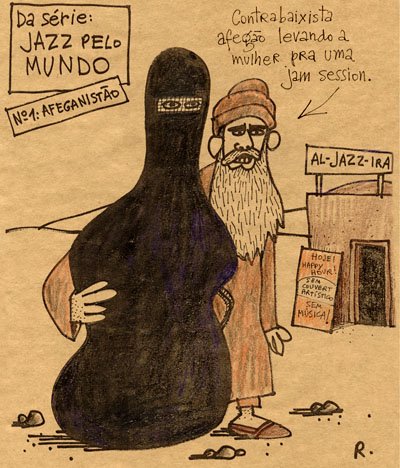 Da série:
JAZZ PELO
MUNDO
Nº1: AFEGANISTÃO
Contrabaixista
afegão levando a
mulher pra uma
jam session.
AL-JAZZ-IRA
HOJE!
HAPPY
HOUR!
SEM
COUVERT
ARTÍSTICO
SEM
MÚSICA!
R.